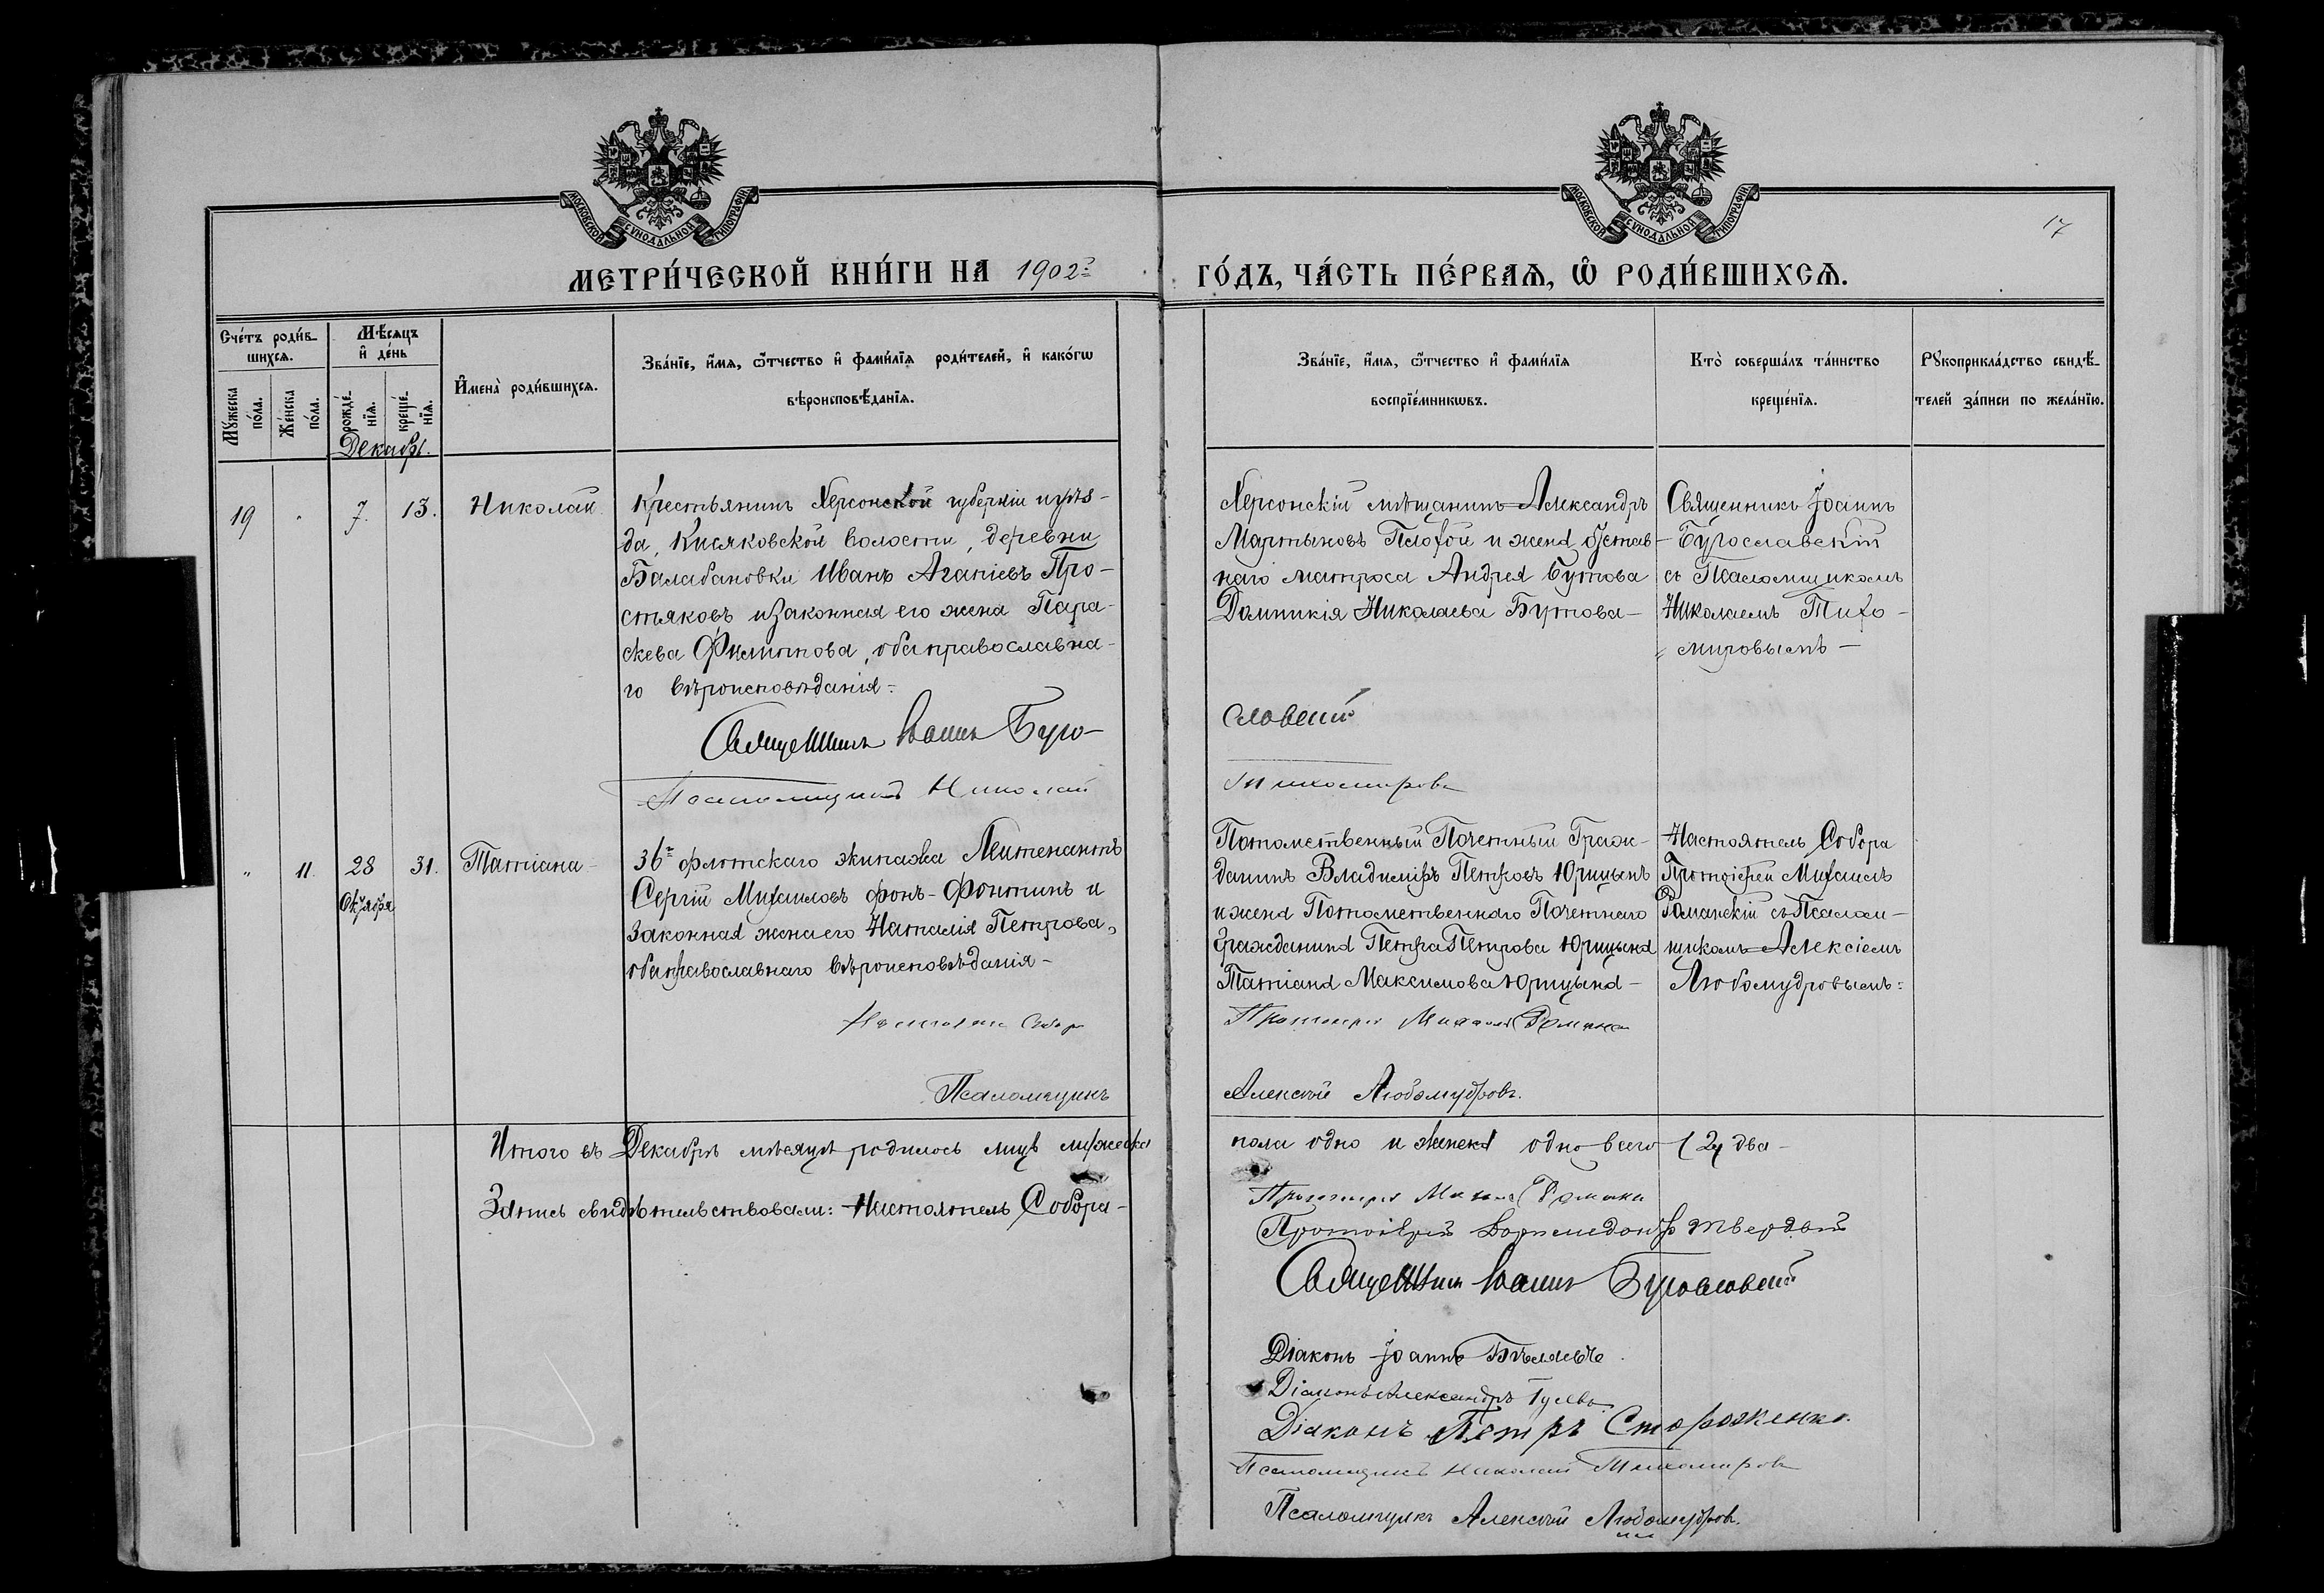 МОСКОВСКОЙ СѴНОДАЛЬНОЙ ТИПОГРАФІИ
МОСКОВСКОЙ СѴНОДАЛЬНОЙ ТИПОГРАФІИ
17
МЕТРИ́ЧЕСКОЙ КНИ́ГИ НА 1902 ГО́ДЪ, ЧА́СТЬ ПЕ́РВАѦ, Ѡ҆ РОДИ́ВШИХСѦ.
Сче́тъ роди́в-
шихсѧ.
Мꙋ́жеска по́ла.
Же́нска по́ла.
Мѣ́сѧцъ
и҆ де́нь
рожде́-
нїѧ.
креще́-
нїѧ.
Декабрь.
И҆мена̀ роди́вшихсѧ.
Зва́нїе, и҆́мѧ, ѻ҆́тчество и҆ фами́лїѧ роди́телей, и҆ како́гѡ
вѣроисповѣ́данїѧ.
Зва́нїе, и҆́мѧ, ѻ҆́тчество и҆ фами́лїѧ
воспрїе́мникѡвъ.
Кто̀ соверша́лъ та́инство
креще́нїѧ.
Рꙋкоприкла́дство свидѣ́-
телей за́писи по жела́нїю.
19 " 7. 13. Николай
Крестьянинъ Херсонской губерніи и уѣз-
да, Кисяковской волости, деревни
Балабановки Иванъ Агапіевъ Про-
стяковъ и законная его жена Пара-
скева Филиппова, оба православна-
го вѣроисповѣданія-
Священникъ Іоаннъ Буго-
Псаломщикъ Николай
Херсонскій мѣщанинъ Александръ
Мартыновъ Плохой и жена устав-
наго матроса Андрея Бутова
Домникія Николаева Бутова-
словскій
Тихомировъ
Священникъ Іоаннъ
Бугославскій
съ Псаломщикомъ
Николаемъ Тихо-
мировымъ-
" 11. 28 31. Татіана-
Октября
36го флотскаго экипажа Лейтенантъ
Сергій Михаиловъ фонъ-Фонтинъ и
законная жена его Наталія Петрова,
оба православнаго вѣроисповѣданія-
Настоятель Собора
Псаломщикъ
Потомственный Почетный Граж-
данинъ Владиміръ Петровъ Юрицынъ
и жена Потомственнаго Почетнаго
Гражданина Петра Петрова Юрицына
Татіана Максимова Юрицына-
Протоіерей Михаилъ Романскій
Алексій Любомудровъ.
Настоятель Собора
Протоіерей Михаилъ
Романскій съ Псалом-
щикомъ Алексіемъ
Любомудровымъ:
Итого въ Декабрѣ мѣсяцѣ родилось лицъ мужеска пола одно и женска одно всего (2) два-
Запись свидѣтельствовали: Настоятель Собора-
Протоіерей Михаилъ Романскій
Протоіерей Твердый
Священникъ Іоаннъ Бугославскій
Діаконъ Іоаннъ Бѣляевъ.
Діаконъ Александръ Гусевъ.
Діаконъ Петръ Стороженко.
Псаломщикъ Николай Тихомировъ
Псаломщикъ Алексій Любомудровъ.